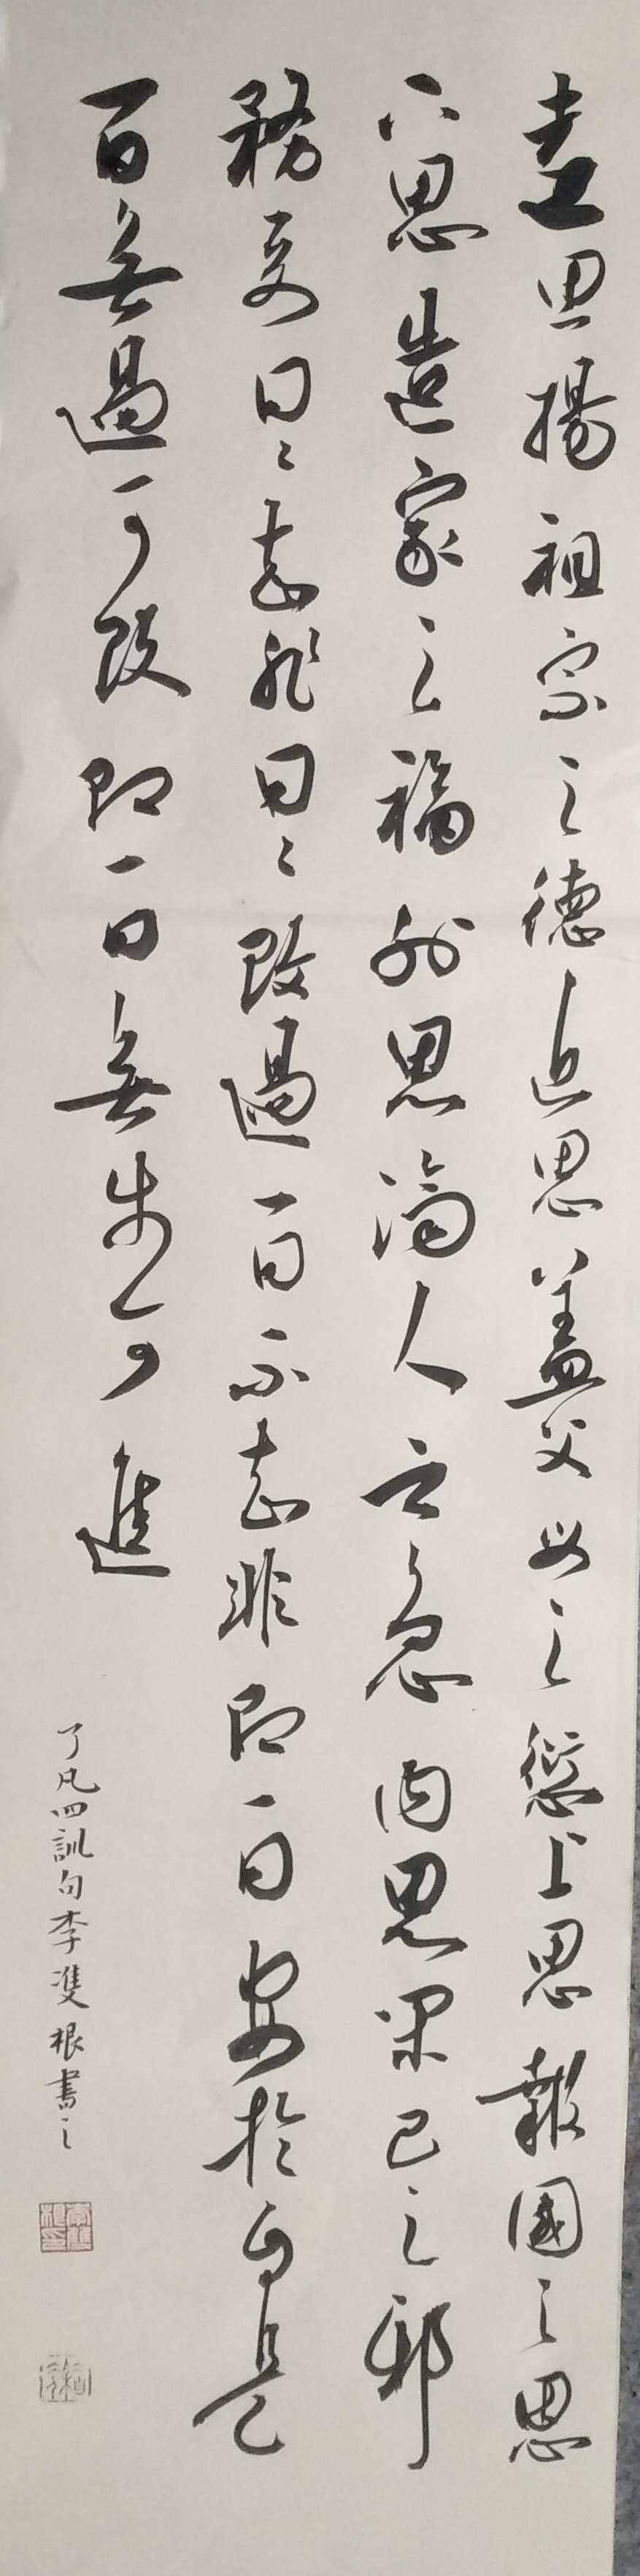 遠思揚祖宗之德近思蓋父母之愆上思報國之恩
下思造家之福外思濟人之急内思閑己之邪
務要日日知非日日改過一日不知非即一日安於自是
一日無過可改即一日無步可進
了凡四訓句李雙根書之